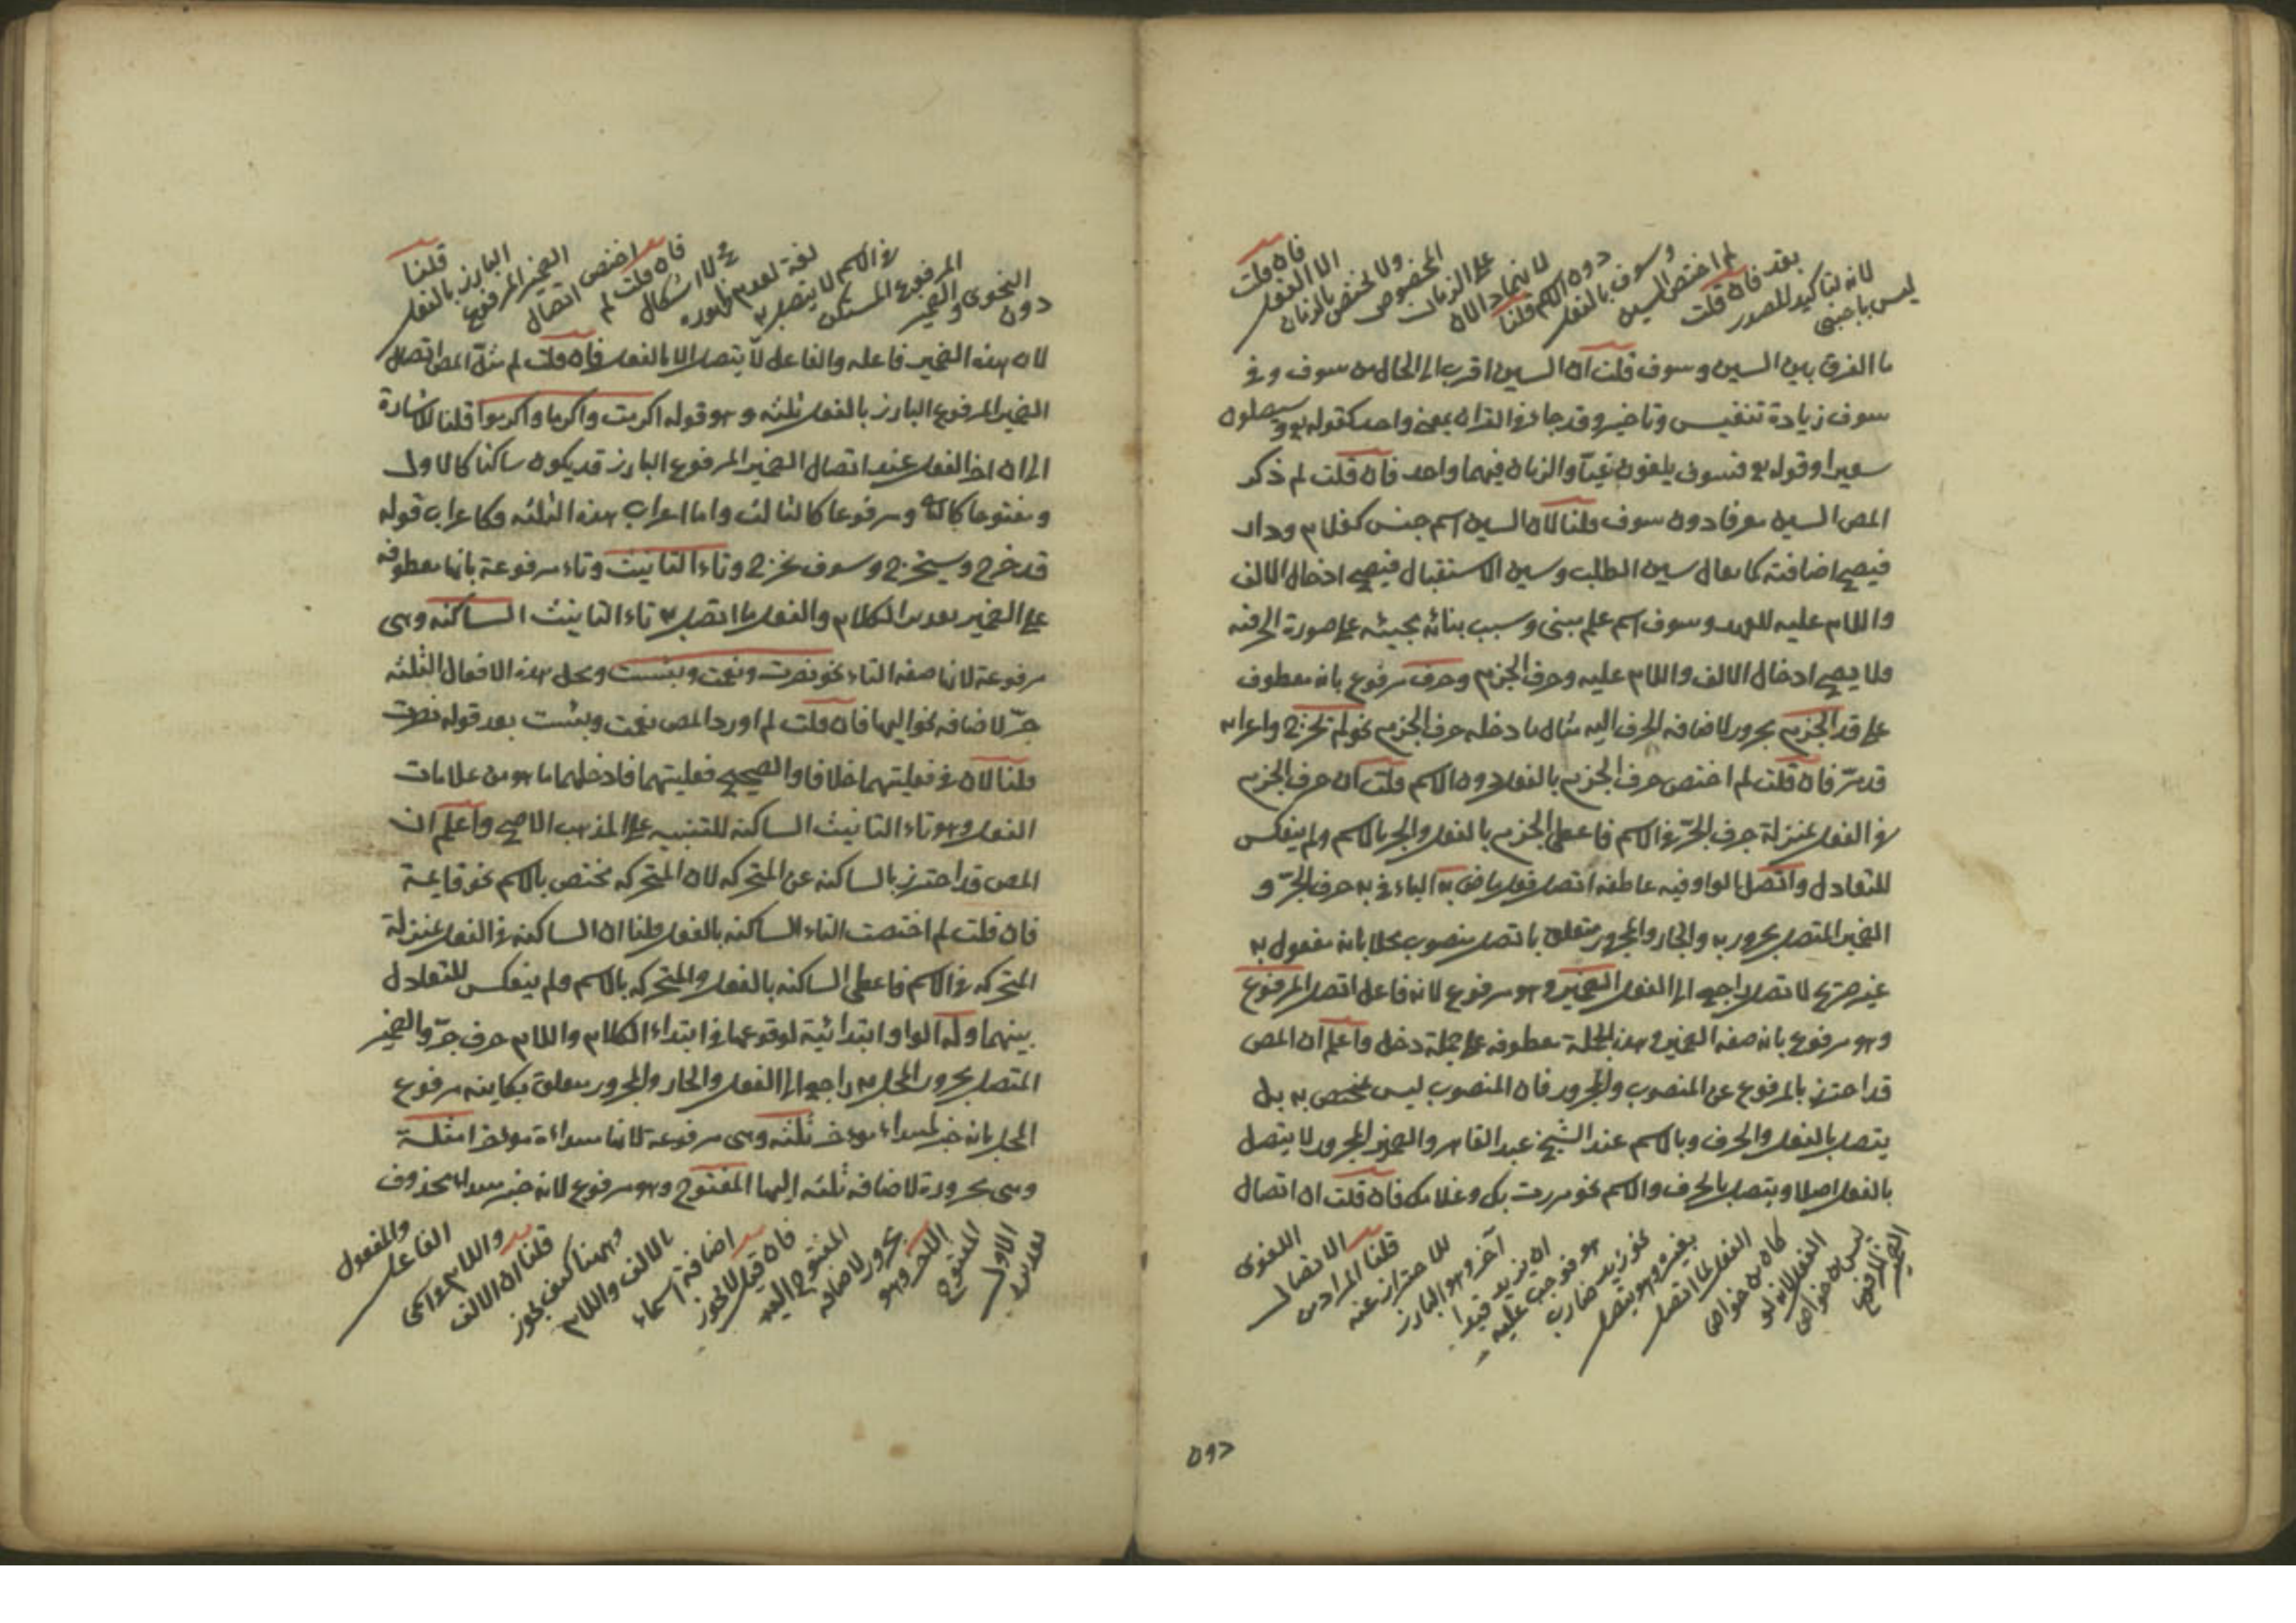 ليس باجنبى
لانه لتاكيد المصدر
بقد فان قلت
لم اختص السين
وسوف بالفعل
دون الاسم قلنا
لانهما دالان
على الزمان
المخصوص
ولا يختص بالزمان
الا الفعل
فان قلت
ما الفرق بين السين وسوف قلت ان السين اقرب الى الحال من سوف وفى
سوف زيادة تنفيس وتاخير وقد جاء فى القران بمعنى واحد كقوله تع وسيصلون
سعيرا وقوله تع فسوف يلقون غيّا والزمان فيهما واحد فان قلت لم ذكر
المص السين معرفا دون سوف قلنا لان السين اسم جنس كغلام ودار
فيصح اضافته كما يقال سين الطلب وسين الاستقبال فيصح ادخال الالف
واللام عليه للعهد وسوف اسم علم مبنى وسبب بنائه مجيئه على صورة الحرفية
ولا يصح ادخال الالف واللام عليه وحرف الجزم وحرف مرفوع بانه معطوف
على قد الجزم مجرور لاضافة الحرف اليه مثال ما دخله حرف الجزم نحو لم يخرج واعرابه
قد مرّ فان قلت لم اختص حرف الجزم بالفعل دون الاسم قلت ان حرف الجزم
فى الفعل بمنزلة حرف الجرّ فى الاسم فاعطى الجزم بالفعل والجر بالاسم ولم ينعكس
للتعادل واتصل الواو فيه عاطفه اتصل فعل ماض به الباء فى به حرف الجرّ و
الضمير المتصل مجرور به والجار والمجرور متعلق باتصل منصوب محلا بانه مفعول به
غير صريح لاتصل راجع الى الفعل الضمير وهو مرفوع لانه فاعل اتصل المرفوع
وهو مرفوع بانه صفة الضمير وهذه الجملة معطوفه على جملة دخل واعلم ان المص
قد احترز بالمرفوع عن المنصوب والمجرور فان المنصوب ليس مختص به بل
يتصل بالفعل والحرف وبالاسم عند الشيخ عبد القاهر والضمير المجرور لا يتصل
بالفعل اصلا ويتصل بالحرف والاسم نحو مررت بك وغلامك فان قلت ان اتصال
الضمير المرفوع
ليس من خواص
الفعل لانه لو
كان من خواص
الفعل لما اتصل
بغيره وهو يتصل
نحو زيد ضارب
هو فوجب عليه
ان يزيد قيدا
آخر وهو البارز
للاحتراز عنه
قلنا المراد من
الاتصال
اللغوى
دون
دون
النحوى والضمير
المرفوع المستكن
فى الاسم لا يتصل به
لغة لعدم ظهوره
فلا اشكال
فان قلت لم
اختص اتصال
الضمير المرفوع
البارز بالفعل
قلنا
لان هذه الضمير فاعله والفاعل لا يتصل الا بالفعل فان قلت لم مثّل المص اتصال
الضمير المرفوع البارز بالفعل ثلثه وهو قوله اكرمت واكرما واكرموا قلنا للاشارة
الى ان اخر الفعل عند اتصال الضمير المرفوع البارز قد يكون ساكنا كالاول
ومفتوحا كالثانى ومرفوعا كالثالث واما اعراب هذه الثلثه فكاعراب قوله
قد خرج وسيخرج وسوف يخرج وتاء التانيث وتاء مرفوعة بانها معطوفه
على الضمير تقدير الكلام والفعل ما اتصل به تاء التانيث الساكنه وهى
مرفوعة لانها صفه التاء نحو نصرت ونعمت وبئست ومحل هذه الافعال الثلثه
جرّ لاضافه نحو اليها فان قلت لم اورد المص نعمت وبئست بعد قوله نصرت
قلنا لان فى فعليتهما خلافا والصحيح فعليتهما فادخلهما ما هو من علامات
الفعل وهو تاء التانيث الساكنه للتنبيه على المذهب الاصح واعلم ان
المص قد احترز بالساكنه عن المتحركه لان المتحركه تختص بالاسم نحو قايمة
فان قلت لم اختصت التاء الساكنه بالفعل قلنا ان الساكنه فى الفعل بمنزلة
المتحركه فى الاسم فاعطى الساكنه بالفعل والمتحركه بالاسم ولم ينعكس للتعادل
بينهما وله الواو ابتدائية لوقوعها فى ابتداء الكلام واللام حرف جرّ والضمير
المتصل مجرور المحل به راجع الى الفعل والجار والمجرور متعلق بكاينه مرفوع
المحل بانه خبر لمبتداء مؤخر ثلثه وهى مرفوعة لانها مبتداءة مؤخر امثلة
وهى مجرورة لاضافه ثلثه اليها المفتوح وهو مرفوع لانه خبر مبتداء محذوف
تقديره
الاول
المفتوح
الاخر وهو
مجرور لاضافه
المفتوح اليه
فان قيل لا يجوز
اضافة اسماء
بالالف واللام
وههنا كيف يجوز
قلنا ان الالف
واللام فى اسمى
الفاعل
والمفعول